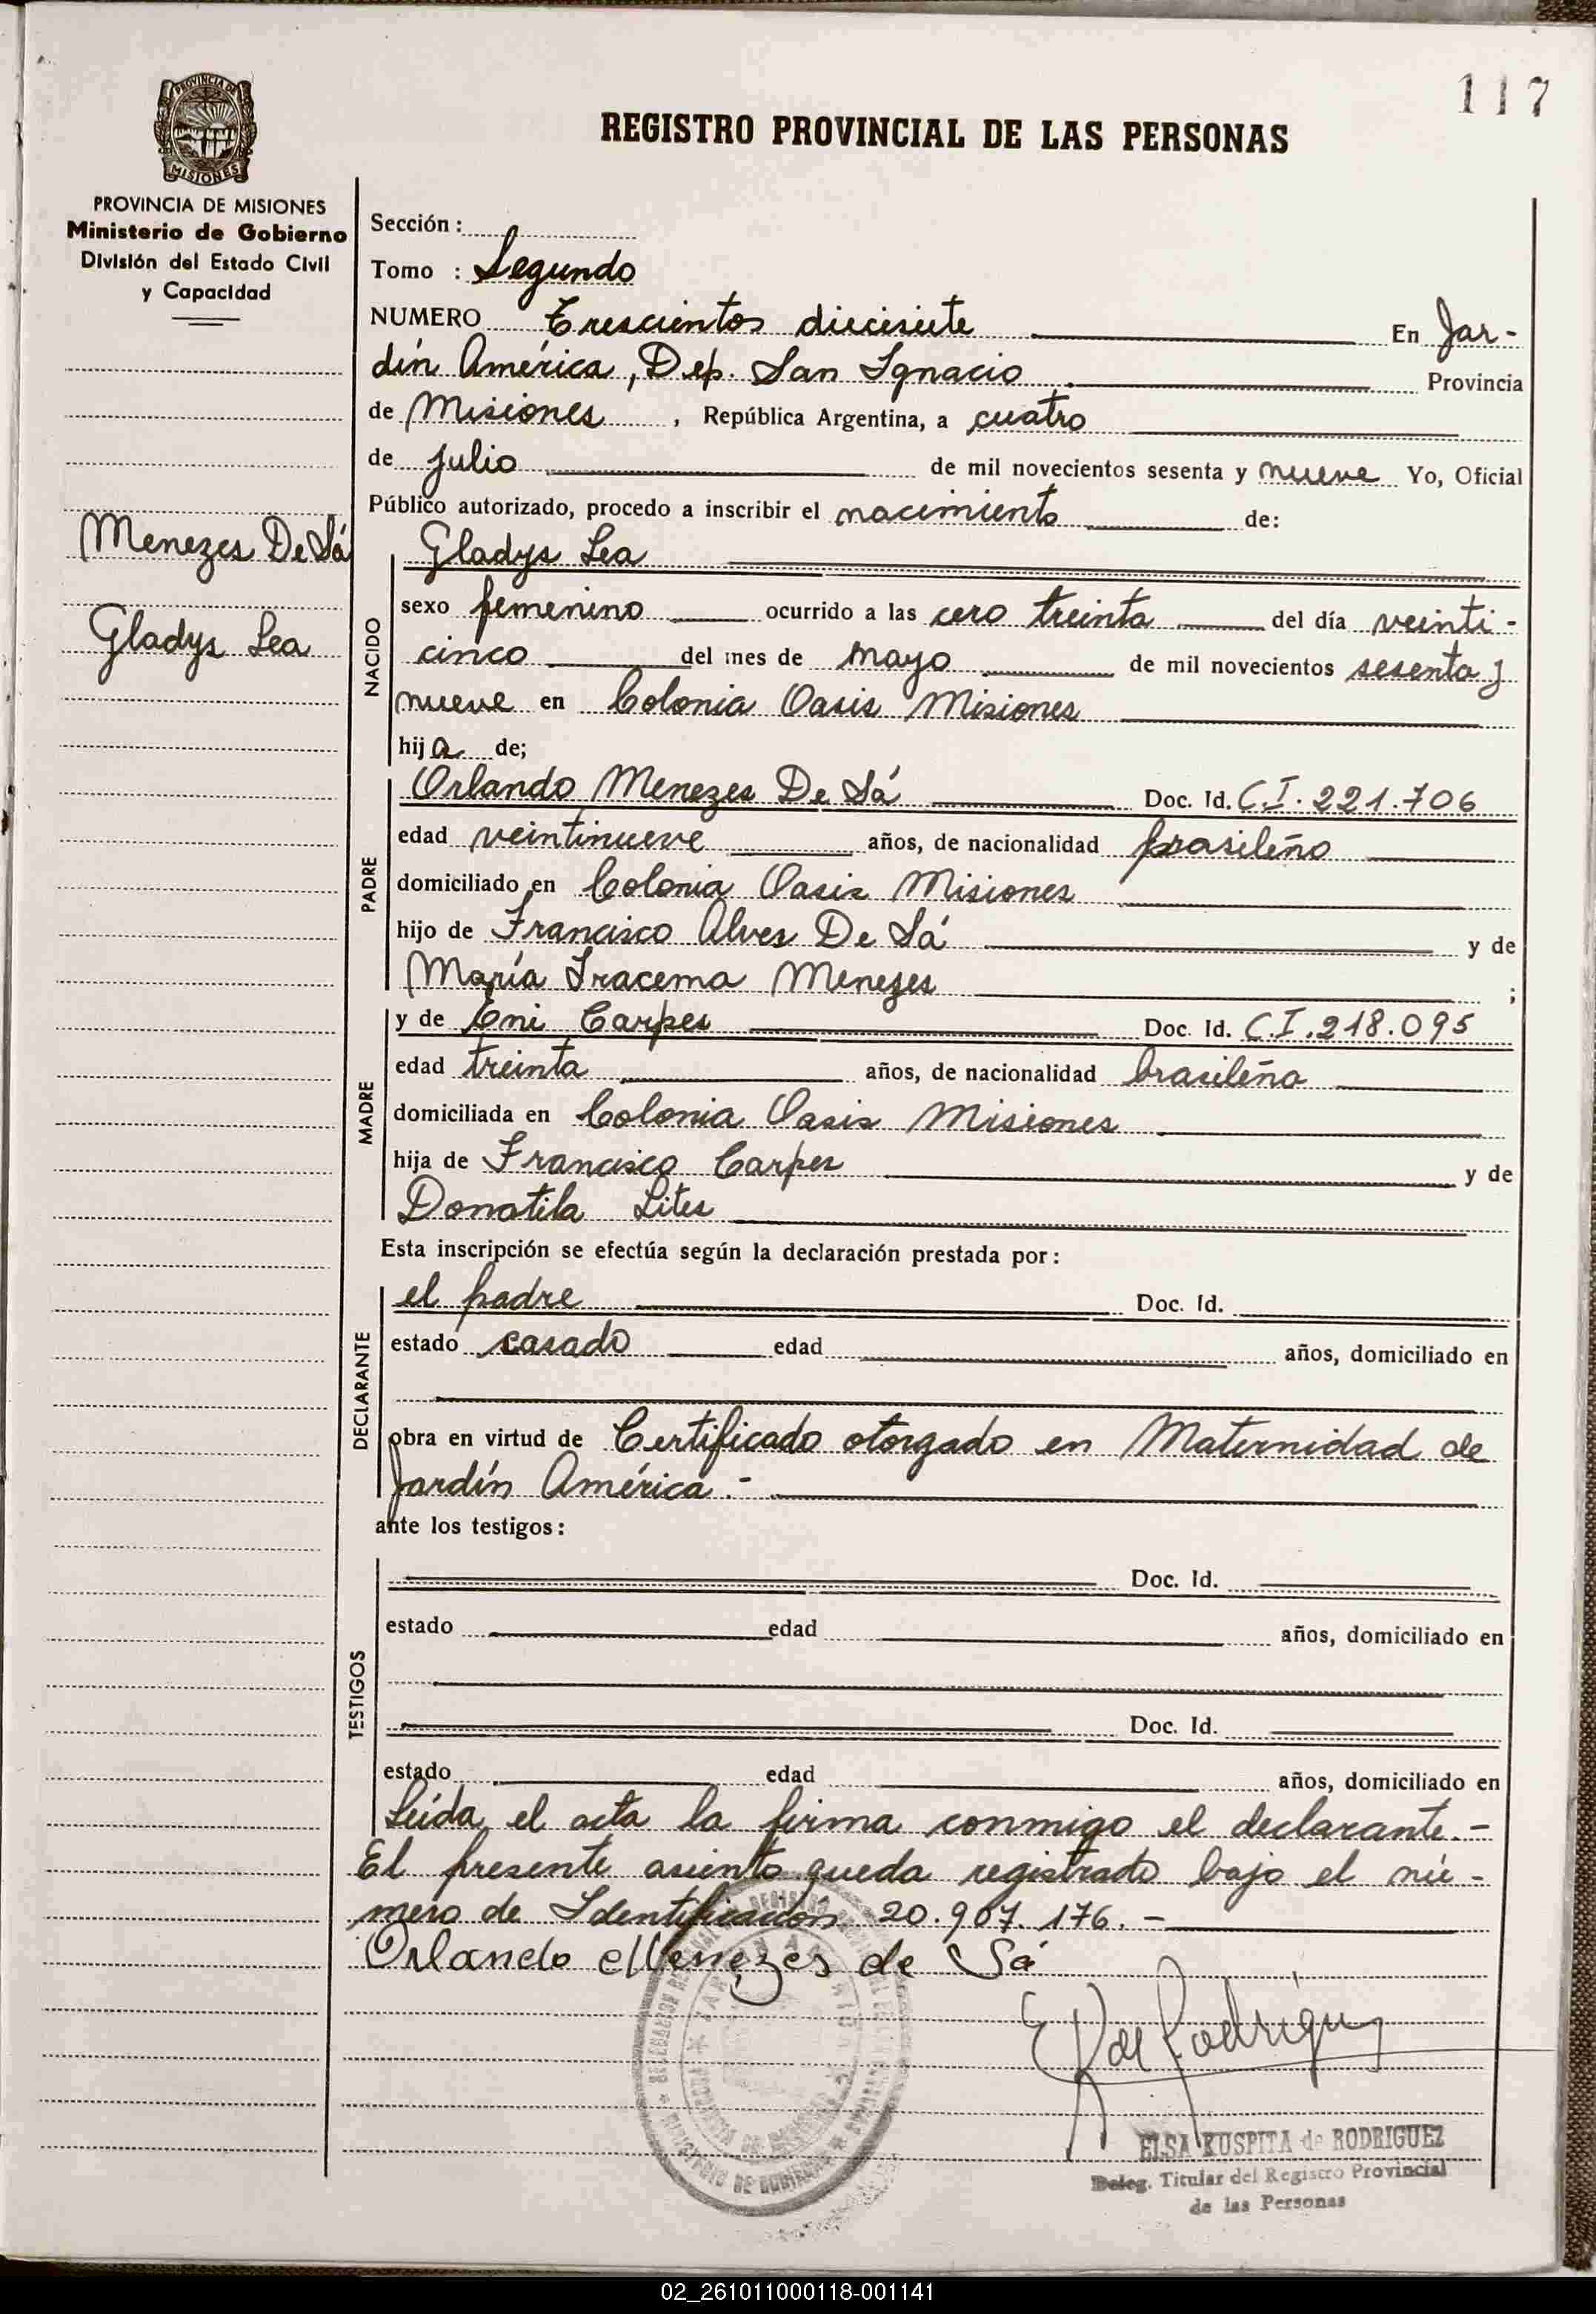 117
REGISTRO PROVINCIAL DE LAS PERSONAS
PROVINCIA DE
MISIONES
PROVINCIA DE MISIONES
Ministerio de Gobierno
División del Estado Civil
y Capacidad
Menezes De Sá
Gladys Lea
Sección :
Tomo : Segundo
NUMERO Trescientos diecisiete En Jar-
dín América, Dep. San Ignacio Provincia
de Misiones , República Argentina, a cuatro
de julio de mil novecientos sesenta y nueve Yo, Oficial
Público autorizado, procedo a inscribir el nacimiento de:
NACIDO
Gladys Lea
sexo femenino ocurrido a las cero treinta del día veinti-
cinco del mes de mayo de mil novecientos sesenta y
nueve en Colonia Oasis Misiones
hija de;
PADRE
Orlando Menezes De Sá Doc. Id. C.I. 221.706
edad veintinueve años, de nacionalidad brasileño
domiciliado en Colonia Oasis Misiones
hijo de Francisco Alves De Sá y de
María Iracema Menezes ;
MADRE
y de Eni Carpes Doc. Id. C.I. 218.095
edad treinta años, de nacionalidad brasileña
domiciliada en Colonia Oasis Misiones
hija de Francisco Carpes y de
Donatila Lites
Esta inscripción se efectúa según la declaración prestada por :
DECLARANTE
el padre Doc. Id.
estado casado edad años, domiciliado en
obra en virtud de Certificado otorgado en Maternidad de
Jardín América.-
ante los testigos :
TESTIGOS
Doc. Id.
estado edad años, domiciliado en
Doc. Id.
estado edad años, domiciliado en
Leída el acta la firma conmigo el declarante.-
El presente asiento queda registrado bajo el nú-
mero de Identificación 20.907.176.-
Orlando Menezes de Sá
E K de Rodriguez
ELSA KUSPITA de RODRIGUEZ
Deleg. Titular del Registro Provincial
de las Personas
02_261011000118-001141